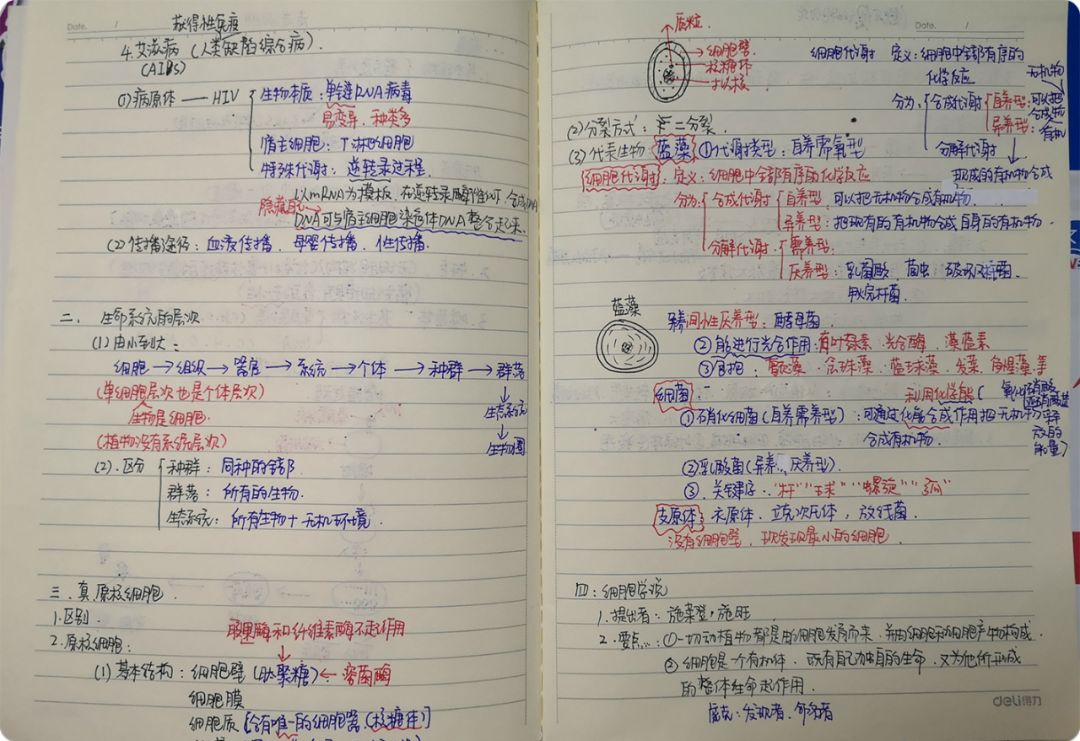 Date.
获得性免疫
4.艾滋病（人类缺陷综合病）.
(AIDS)
(1)病原体——HIV
生物本质：单链RNA病毒
易变异、种类多
宿主细胞：T淋巴细胞
特殊代谢：逆转录过程
以mRNA为模板，在逆转录酶催化下合成DNA
隐藏自己
DNA可与宿主细胞染色体DNA整合起来.
(2)传播途径：血液传播、母婴传播、性传播.
二、生命系统的层次
(1)由小到大：
细胞→组织→器官→系统→个体→种群→群落
(单细胞层次也是个体层次)
→生态系统
生物是细胞.
→生物圈
(植物没有系统层次)
(2).区分
种群：同种的全部
群落：所有的生物.
生态系统：所有生物+无机环境.
三.真.原核细胞.
1.区别.
2.原核细胞：
胰果酶和纤维素酶不起作用
(1)基本结构：细胞壁(肽聚糖)←溶菌酶
细胞膜
细胞质[含有唯一的细胞器(核糖体)]
Date.
质粒
细胞壁
核糖体
拟核
细胞代谢 定义：细胞中全部有序的
化学反应
分为：合成代谢
自养型：可以把
无机物
合成
有机
异养型：
分解代谢
现成的有机物合成
(2)分裂方式：二分裂.
(3)代表生物：蓝藻 ①代谢类型：自养需氧型
细胞代谢：定义：细胞中全部有序的化学反应
分为：合成代谢
自养型：可以把无机物合成有机物.
异养型：把现有的有机物合成自身的有机物.
分解代谢.
需养型.
厌养型：乳菌酸、蛔虫 破坏风梭菌
甲烷杆菌.
蓝藻
兼养间性厌养型：酵母菌
②能进行光合作用：有叶绿素 光合酶、藻蓝素
③包括、念珠藻、蓝球藻、发菜、颤藻等
细菌：
利用化学能(
①硝化细菌(自养需养型)：可通过化能合成作用把无机物
合成有机物.
释
放的
能量)
②乳酸菌(异养、厌养型).
③.关键字："杆""球""螺旋""弧"
支原体：衣原体、立克次氏体、放线菌.
没有细胞壁、现发现最小的细胞.
四：细胞学说
1.提出者：施莱登，施旺
2.要点：①一切动植物都是由细胞发育而来.并由细胞和细胞产物构成.
②细胞是一个有机体.既有自己独自的生命.又为他所形成
的整体生命起作用.
虎克：发现者、命名者
deli得力